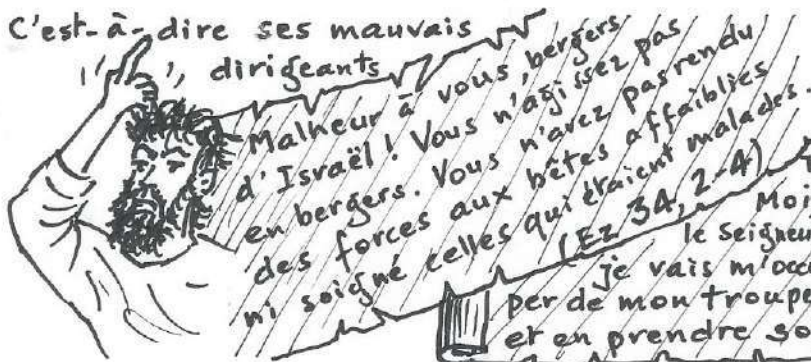 C'est-à-dire ses mauvais
dirigeants
Malheur à vous, bergers
d'Israël ! Vous n'agissez pas
en bergers. Vous n'avez pas rendu
des forces aux bêtes affaiblies
ni soigné celles qui étaient malades.
(Ez 34, 2-4)
Moi
le Seigneur
je vais m'occu
per de mon troupe
et en prendre so